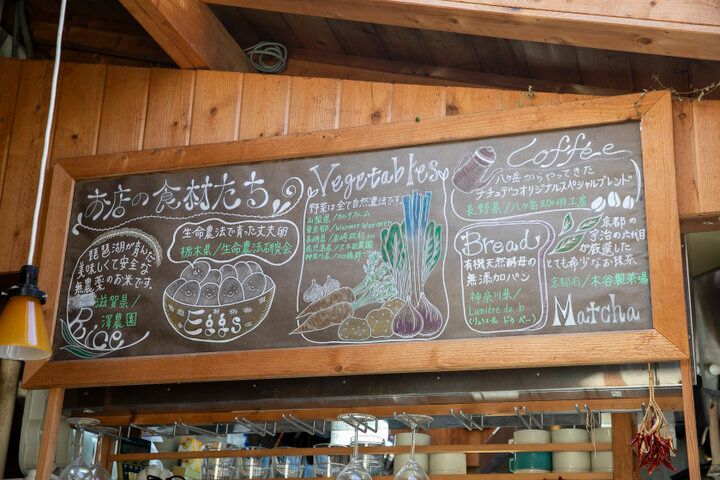 お店の食材たち
琵琶湖が育んだ
美味しくて安全な
無農薬のお米です。
滋賀県/
澤農園
Rice
生命農法で育った丈夫卵
栃木県/生命農法研究会
Eggs
Vegetables
野菜は全て自然農法です。
山梨県/
東京都/
長崎県/岩崎政利さん
鹿児島県/
神奈川県/
Coffee
八ヶ岳からやってきた
ナチュデコオリジナルスペシャルブレンド
長野県/八ヶ岳珈琲工房
Bread
有機天然酵母の
無添加パン
神奈川県/
Lumière du b
京都の
宇治の六代目
が厳選した
とても希少なお抹茶
京都府/木谷製茶場
Matcha